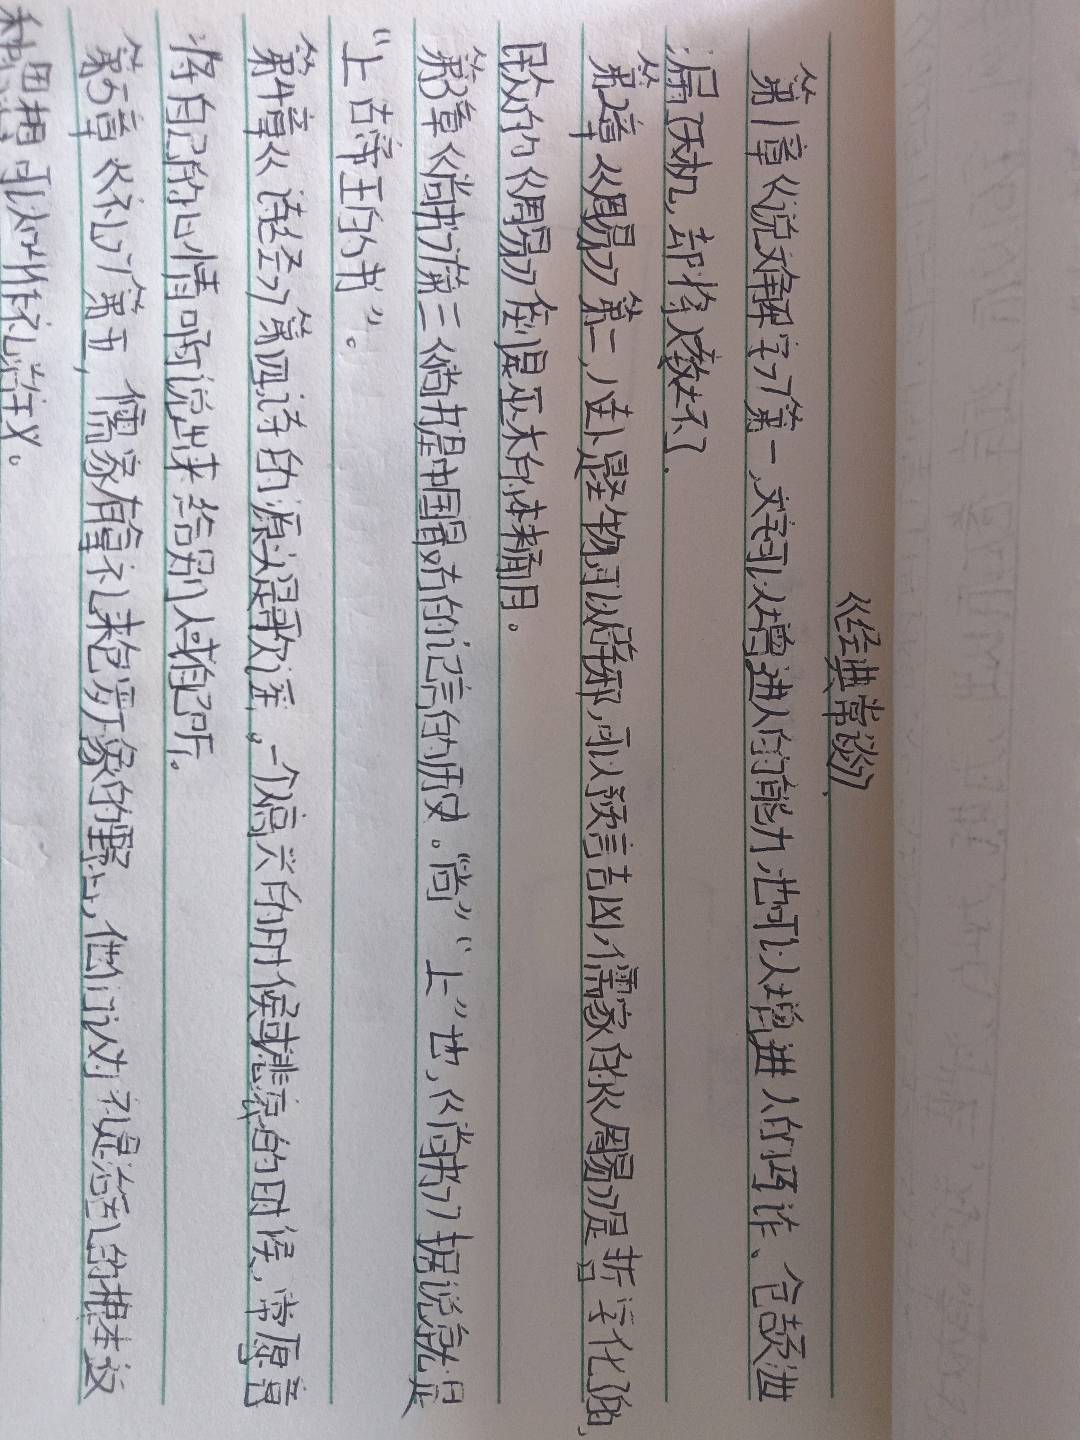 《经典常谈》
第1章《说文解字》第一，文字可以增进人的能力，也可以增进人的巧诈、仓颉泄
漏天机，却将人教坏了.
第2章《周易》第二，八卦是圣物可以辟邪，可以预言吉凶，儒家的《周易》是哲学化的，
民众的《周易》倒是巫术的本来面目。
第3章《尚书》第三《尚书是中国最古的记言的历史。“尚”“上”也，《尚书》据说就是
“上古帝王的书”。
第4章《诗经》第四诗的源头是歌谣，一个人高兴的时候或悲哀的时候，常愿意
将自己的心情诉说出来给别人或自己听。
第5章《礼》第五，儒家有拿礼来包罗万象的野心，他们认为礼是治乱的根本这
种思想可以叫作礼治主义。